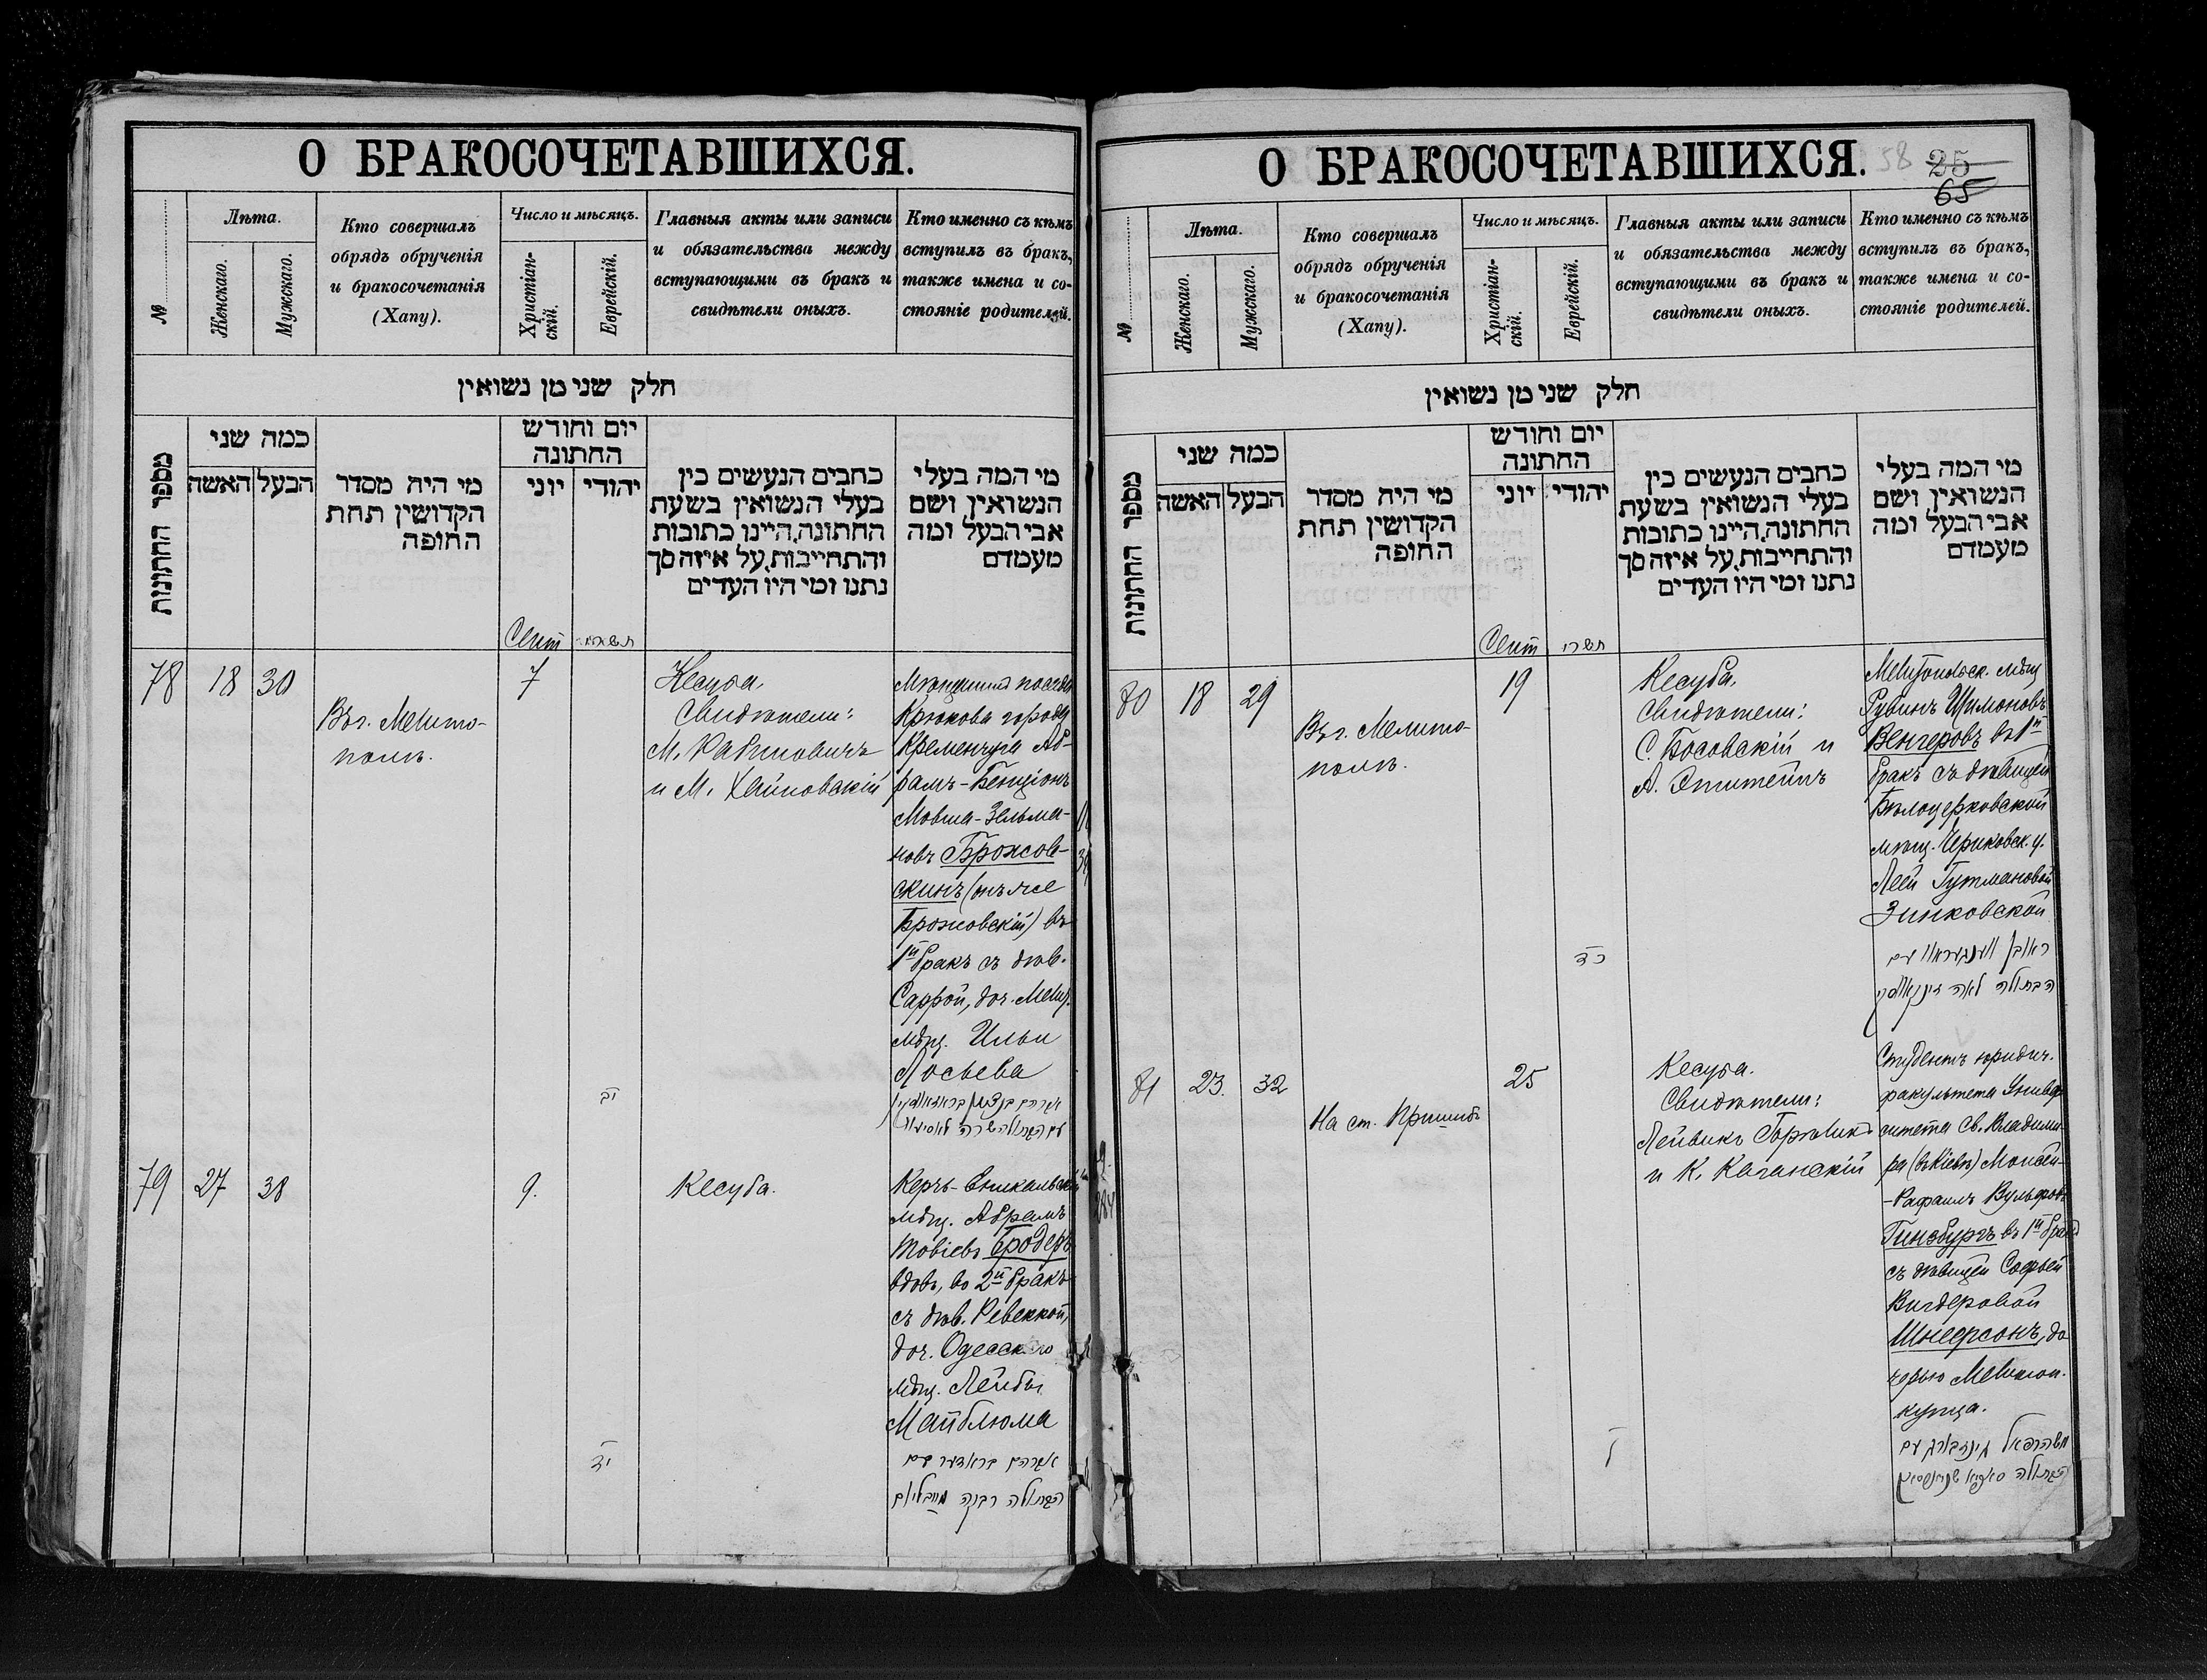 О БРАКОСОЧЕТАВШИХСЯ.
№
Лѣта.
Женскаго.
Мужскаго.
Кто совершалъ
обрядъ обрученія
и бракосочетанія
(Хапу).
Число и мѣсяцъ.
Христіан-
скій.
Еврейскій.
Главныя акты или записи
и обязательства между
вступающими въ бракъ и
свидѣтели оныхъ.
Кто именно съ кѣмъ
вступилъ въ бракъ,
также имена и со-
стояніе родителей.
חלק שני מן נשואין
מספר החתונות
כמה שני
האשה
הבעל
מי היה מסדר
הקדושין תחת
החופה
יום וחודש
החתונה
יוני
יהודי
כתבים הנעשים בין
בעלי הנשואין בשעת
החתונה, היינו כתובות
והתחייבות, על איזה סך
נתנו ומי היו העדים
מי המה בעלי
הנשואין ושם
אבי הבעל ומה
מעמדם
Сент
תשרי
78 18 30
Въ г. Мелито-
полѣ.
7
יב
Кесуба.
Свидѣтели:
М. Рабиновичъ
и М. Хайновскій
Мѣщанинъ посада
Крюкова города
Кременчуга Аб-
рамъ-Бенціонъ
Мовша-Зельма-
новъ Брожов-
скинъ (онъ же
Брожовскій) въ
1й бракъ съ дѣв.
Саррой, доч. Мелит.
мѣщ. Ильи
Лосьева
79 27 38
9.
יד
Кесуба.
Керчь-Еникальскій
мѣщ. Абрамъ
Товіевъ Бродеръ
вдов., во 2й бракъ
съ дѣв. Ревеккой,
доч. Одесскаго
мѣщ. Лейбы
Майблюма
אברהם בראדער עם
הבתולה רבקה מייבליום
О БРАКОСОЧЕТАВШИХСЯ.
58
25
65
№
Лѣта.
Женскаго.
Мужскаго.
Кто совершалъ
обрядъ обрученія
и бракосочетанія
(Хапу).
Число и мѣсяцъ.
Христіан-
скій.
Еврейскій.
Главныя акты или записи
и обязательства между
вступающими въ бракъ и
свидѣтели оныхъ.
Кто именно съ кѣмъ
вступилъ въ бракъ,
также имена и со-
стояніе родителей.
חלק שני מן נשואין
מספר החתונות
כמה שני
האשה
הבעל
מי היה מסדר
הקדושין תחת
החופה
יום וחודש
החתונה
יוני
יהודי
כתבים הנעשים בין
בעלי הנשואין בשעת
החתונה, היינו כתובות
והתחייבות, על איזה סך
נתנו ומי היו העדים
מי המה בעלי
הנשואין ושם
אבי הבעל ומה
מעמדם
Сент
תשרי
80 18 29
Въ г. Мелито-
полѣ.
19
כד
Кесуба.
Свидѣтели:
С. Босовскій и
А. Эпштейнъ
Мелитопольск. мѣщ
Рувинъ Шимоновъ
Венгеровъ въ 1й
бракъ съ дѣвицей
Бѣлоцерковской
мѣщ.
Леей Гутмановой
Зинковской
ראובן ווענגעראוו עם
הבתולה לאה זינקאווסקי
81 23. 32
На ст. Пришибъ
25
Кесуба.
Свидѣтели:
Лейвикъ
и К. Каганскій
Студентъ юридич.
факультета Универ
ситета Св. Владими-
ра (въ Кіевѣ) Моисей-
-Рафаилъ Вульфовъ
Гинзбургъ въ 1й бракъ
съ дѣвицей Софьей
Вигдоровой
Шнеерсонъ, до
черью Мелитоп.
купца.
משה רפאל גינזבורג עם
הבתולה סאפיא שניאורסאן